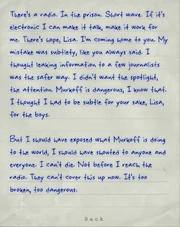 There's a radio. In the prison. Short wave. If it's
electronic I can make it talk, make it work for
me. There's hope, Lisa. I'm coming home to you. My
mistake was subtlety, like you always said. I
thought leaking information to a few journalists
was the safer way. I didn't want the spotlight,
the attention. Murkoff is dangerous, I know that.
I thought I had to be subtle for your sake, Lisa,
for the boys.
But I should have exposed what Murkoff is doing
to the world, I should have shouted to anyone and
everyone. I can't die. Not before I reach the
radio. They can't cover this up now. It's too
broken, too dangerous.
Back